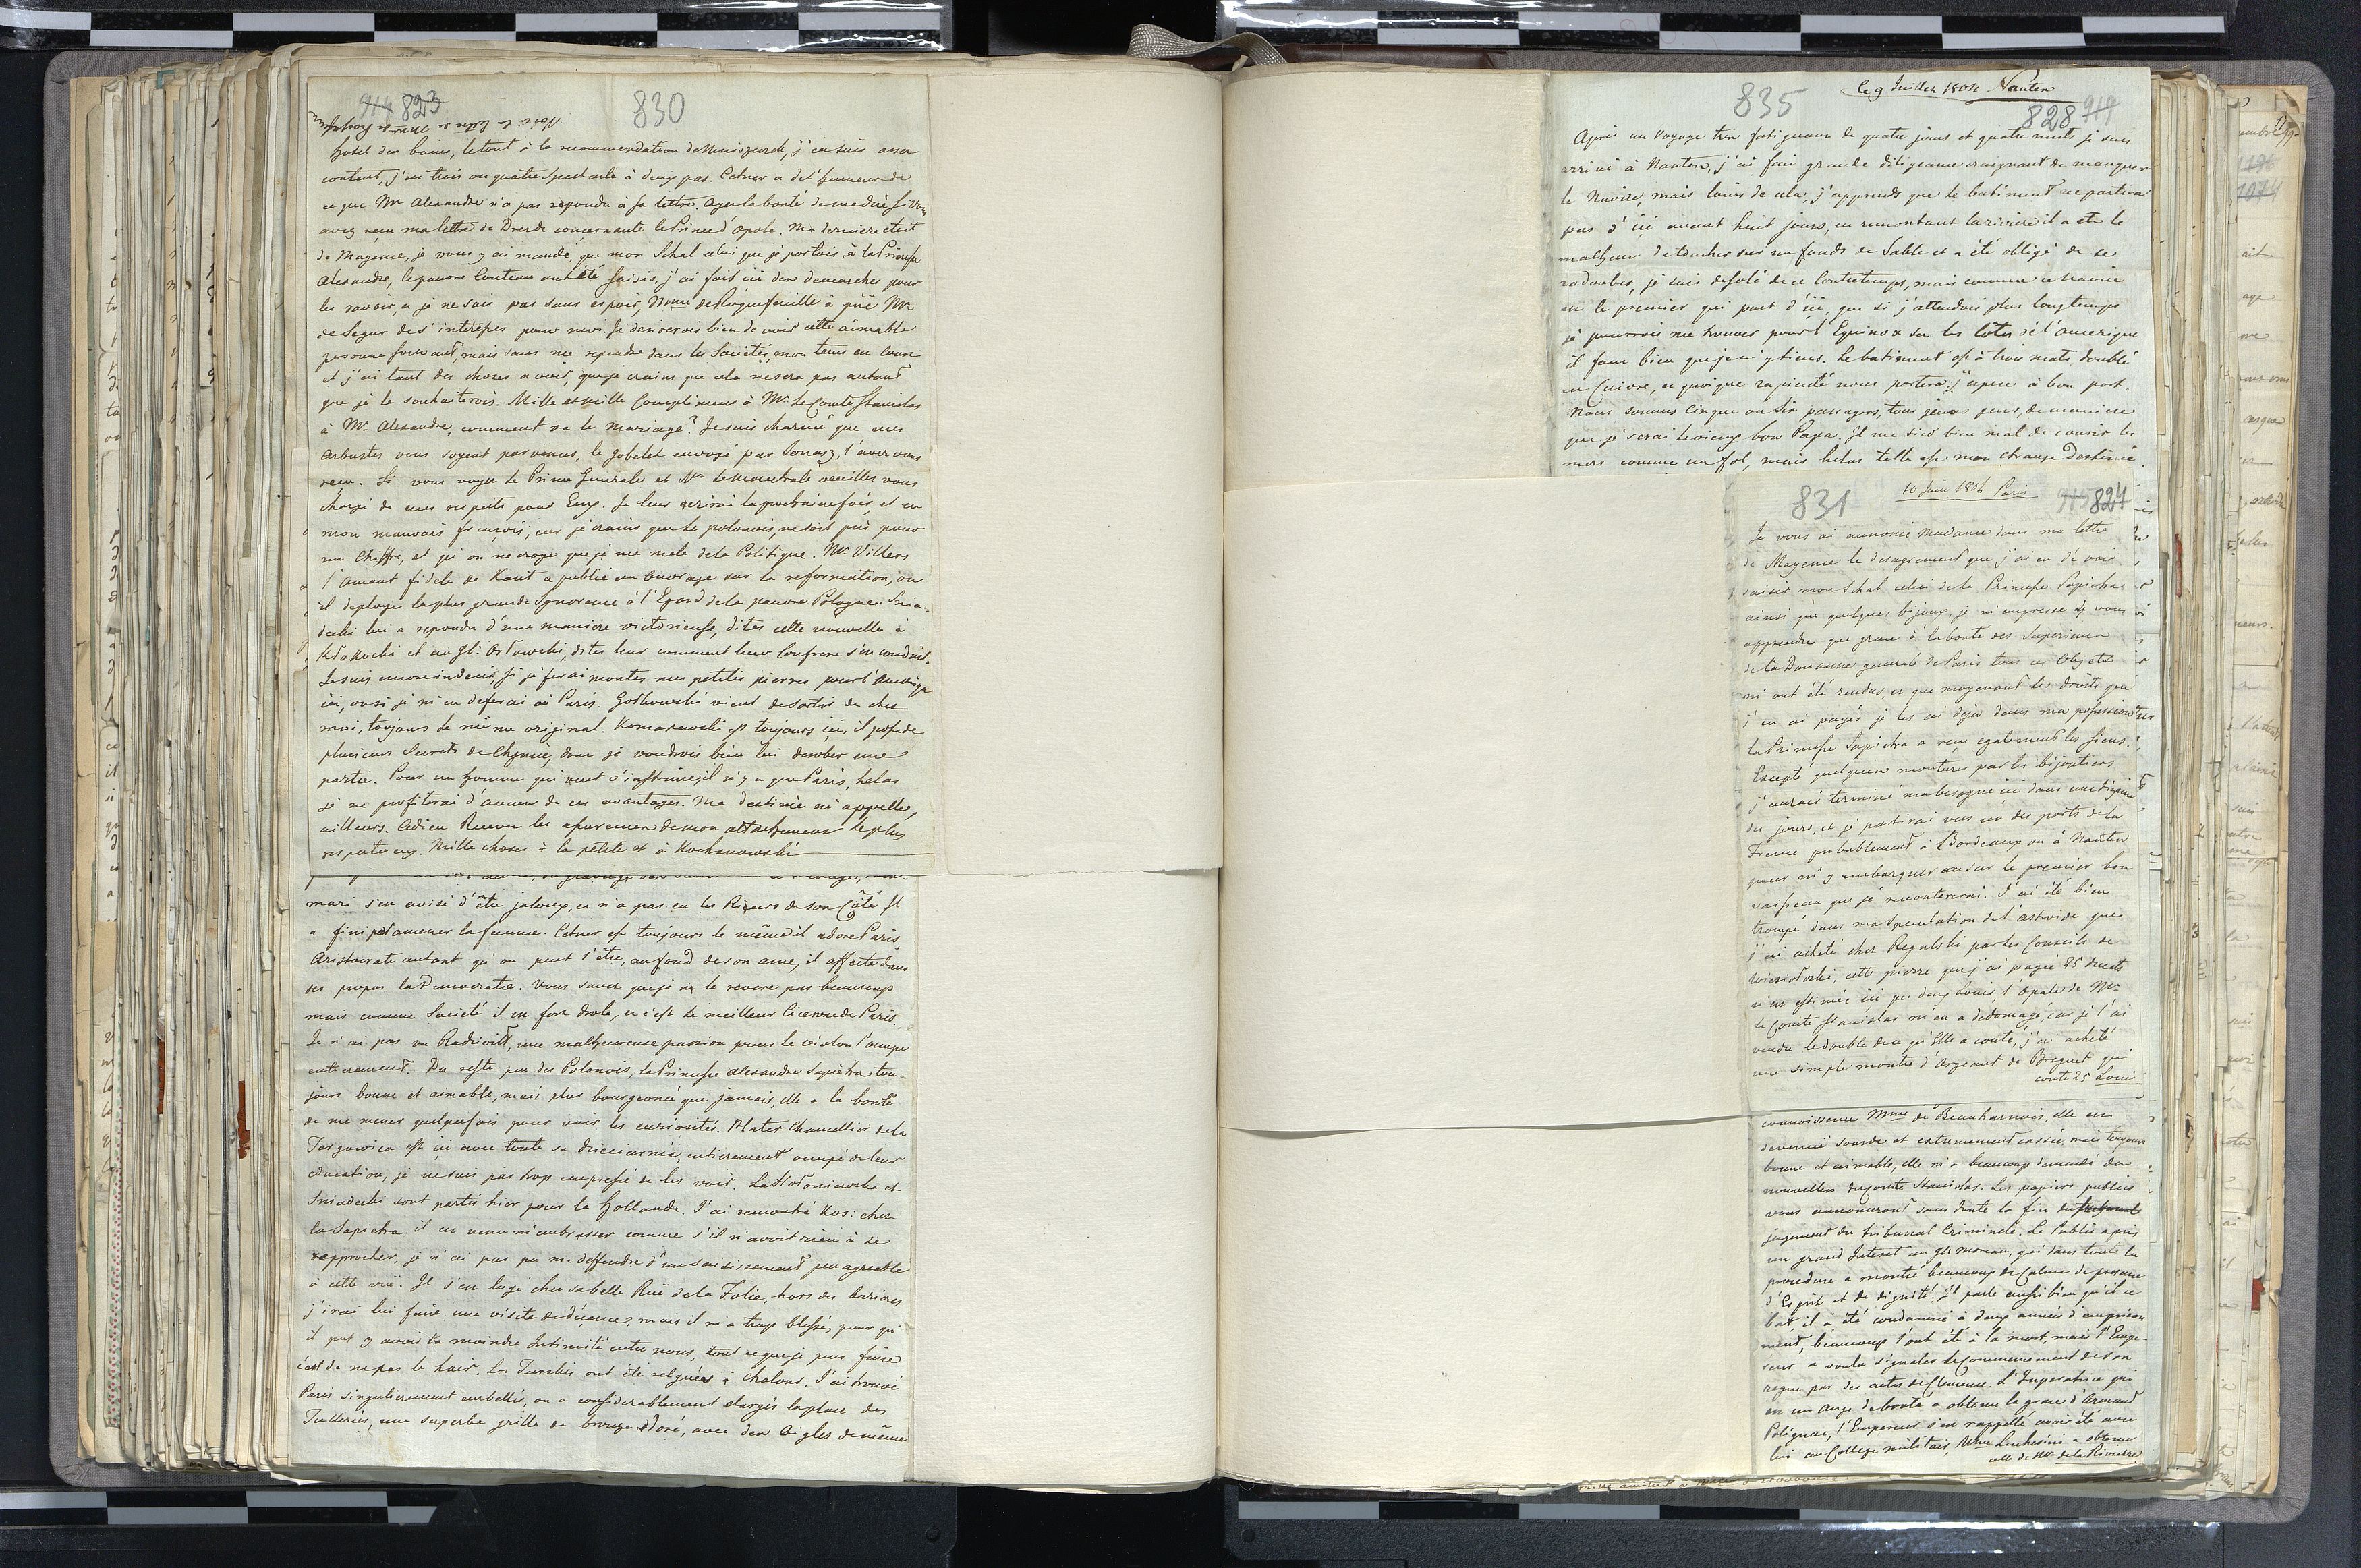 914 823
830
Voici la lettre de Mme de
hôtel des bains, le tout à la recommendation de Meniszerck, j'en suis assez
content, j'ai trois ou quatre Spectacle à deux pas. Cetner a de l'humeur de
ce que Mr Alexandre n'a pas repondu à sa lettre. Ayez la bonté de me dire si vous
avez reçu ma lettre de Dresde concernante le Prince d'opole. Ma derniere etoit
de Mayence, je vous y ai mandé, que mon Schal celui que je portois à la Princesse
Alexandre, le pauvre Couteau ont été saisis, j'ai fait ici des demarches pour
les ravoir, et je ne suis pas sans espoir, Mme de Roquefeuille a prié Mr
de Segur de s'interesser pour moi. Je desirerois bien de voir cette aimable
personne souvent, mais sans me repandre dans les Societés, mon tems est court
et j'ai tant des choses a voir, que je crains que cela ne sera pas autant
que je le souhaiterois. Mille et mille Complimens à Mr Le Comte Stanislas
à Mr Alexandre, comment va le mariage? Je suis charmé que mes
Arbustes vous soyent parvenus, le gobelet envoyé par l'avez vous
reçu. Si vous voyez le Prince Generale et Mr Le Marechale veuillez vous
chargé de mes respects pour Eux. Je leur ecrirai la prochaine fois, et en
mon mauvais françois, car je crains que le polonois, ne soit pris pour
un Chiffre, et qu'on ne croye que je me mele de la Politique. Mr Villers
l'Amant fidele de Kant a publié un Ouvrage sur la reformation, ou
il deploye la plus grande Ignorence à l'Egard de la pauvre Pologne. Snia-
decki lui a repondu d'une maniere victorieuse, dites cette nouvelle à
Kłokocki et au Gl: Orłowski, dites leur comment leur Confrere s'en conduit.
Je suis encore indecis, si je ferai monter mes petites pierres pour l'Amerique
ici, ou si je m'en deferai à Paris. Gorkowski vient de sortir de chez
moi, toujours le même original. Komarzewski est toujours ici, il possede
plusieurs Secrets de Chymie, dont je voudrois bien lui derober une
partie. Pour un homme qui veut s'instruire, il n'y a que Paris, helas
je ne profiterai d'aucun de ces avantages. Ma destinée m'appelle
ailleurs. Adieu Recevez les assurences de mon attachement le plus
respectueux. Mille choses à la petite et à Kochanowski
mari s'en avisé d'être jaloux, et n'a pas eu les Rieurs de son Côté Il
a fini par amener la femme. Cetner est toujours le même il adore Paris,
Aristocrate autant qu'on peut l'être, au fond de son ame, il affecte dans
ses propos la Democratie. Vous savez que je ne le revere pas beaucoup
mais comme Societé il est fort drole, et c'est le meilleur Cicerone de Paris.
Je n'ai pas vu Radziwiłł, une malheureuse passion pour le violon l'occupe
entierement. Du reste peu des Polonois, la Princesse Alexandre Sapieha tou-
jours bonne et aimable, mais plus bourgeonée que jamais, elle a la bonté
de me mener quelquefois pour voir les curiosités. Plater Chancellier de la
Targowica est ici avec toute sa entierement occupé de leur
education, je ne suis pas trop empressé de les voir. La Hołoniewska et
Sniadecki sont partis hier pour la Hollande. J'ai rencontré Kos: chez
la Sapieha il est venu m'embrasser comme s'il n'avoit rien à se
reprocher, je n'ai pas pu me deffendre d'un saisissement peu agreable
à cette vue. Il s'en logé chez sa belle Rue de la Folie, hors des bariers
j'irai lui faire une visite de décence, mais il m'a trop blessé, pour qu'
il put y avoir la moindre Intimité entre nous, tout ce que je puis faire
c'est de ne pas le hair. Les Turskis ont été relgués à Chalons. J'ai trouvé
Paris singulierement embellis, on a considerablement elargis la place des
Tuilleries, une superbe grille de bronze doré, avec des Aigles de même
835
le 9 Juillet 1804 Nantes
828 919
Après un Voyage très fatiguant de quatre jours et quatre nuits je suis
arrivé à Nantes, j'ai fait grande diligeance craignant de manquer
le Navire, mais loin de cela, j'apprends que le batiment ne partira
pas d'ici avant huit jours, en remontant la riviere il a eu le
malheur de toucher sur un fonds de Sable et a été obligé de se
radouber, je suis desolé de ce Contretemps, mais comme ce Navire
est le premier qui part d'ici, que si j'attendois plus longtemps
je pourrois me trouver pour l'Equinox sur les Côtes de l'Amerique
il faut bien que je m'y tiens. Le batiment est à trois mats doublé
en Cuivre, et quoique rapiecté nous portera j'espere à bon port.
Nous sommes Cinque ou Six passagers, tous jeunes gens, de maniere
que je serai le vieux bon Papa. Il me sied bien mal de courir les
mers comme un fol, mais helas telle est mon etrange Destinée.
831
10 Juin 1804 Paris
915 824
Je vous ai annoncé Madame dans ma lettre
de Mayence le desagrement que j'ai eu de voir
saisir mon Schal celui de la Princesse Sapieha
ainsi que quelques bijoux, je m'empresse de vous
apprendre que grace à la bonté des Superieurs
de la Douanne generale de Paris tous ces Objets
m'ont été rendus, et que moyennant les droits que
j'en ai payés je les ai deja dans ma possession
la Princesse Sapieha a reçu egalement les siens.
Excepté quelques monture par les bijoutiers
j'aurais terminé ma besogne ici dans une dizaine
des jours, et je partirai vers un des ports de la
France probablement à Bordeaux ou à Nantes
pour m'y embarquer sur le premier bon
vaisseau que je rencontrerai. J'ai été bien
trompé dans ma Speculation de l'astroide que
j'ai acheté chez Regulski par les Conseils de
Wiesiołoski, cette pierre que j'ai payée 25 Ducats
n'est estimée ici que deux Louis, l'Opale de Mr
le Comte Stanislas m'en a dedomagé, car je l'ai
vendu le double de ce qu'Elle a couté, j'ai acheté
une simple montre d'Argeant de Breguet qui
coute 25 Louis
connoissence Mme de Beauharnois, elle est
devenue sourde et extremement cassée, mais toujours
bonne et aimable, elle m'a beaucoup demandé des
nouvelles du Comte Stanislas. Les papiers publics
vous annonceront sans doute la fin du
jugement du Tribunal Criminele. Le Public a pris
un grand Interet au Gl Moreau, qui dans toute la
procedure a montré beaucoup de Calme de presence
d'Esprit et de dignité. Il parle aussi bien qu'il se
bat, il a été condamné à deux année d'emprison
ment, beaucoup l'ont été à la mort, mais l'Empe-
reur a voulu signaler le Commencement de son
regne par des actes de Clemence. L'Imperatrice qui
est un Ange de bonté a obtenu la grace d'Armand
Polignac, l'Empereur s'en rappellé avoir été avec
lui au College militaire, Mme Luchesini a obtenu
celle de Mr de la Riviere